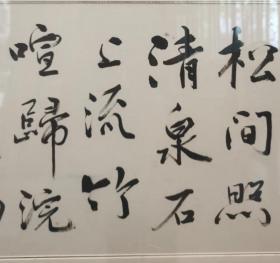 松间照
清泉石
上流竹
喧歸浣